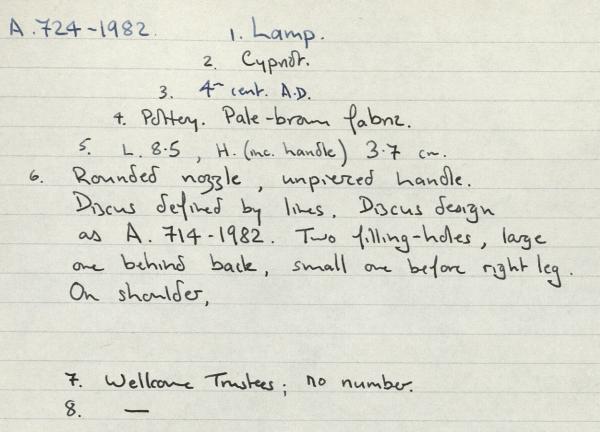 A.724-1982. 1. Lamp.
2. Cypriot.
3. 4th cent. A.D.
4. Pottery. Pale-brown fabric.
5. L. 8.5, H. (inc. handle) 3.7 cm.
6. Rounded nozzle, unpierced handle.
Discus defined by lines. Discus design
as A.714-1982. Two filling-holes, large
one behind back, small one before right leg.
On shoulder,
7. Wellcome Trustees; no number.
8. —